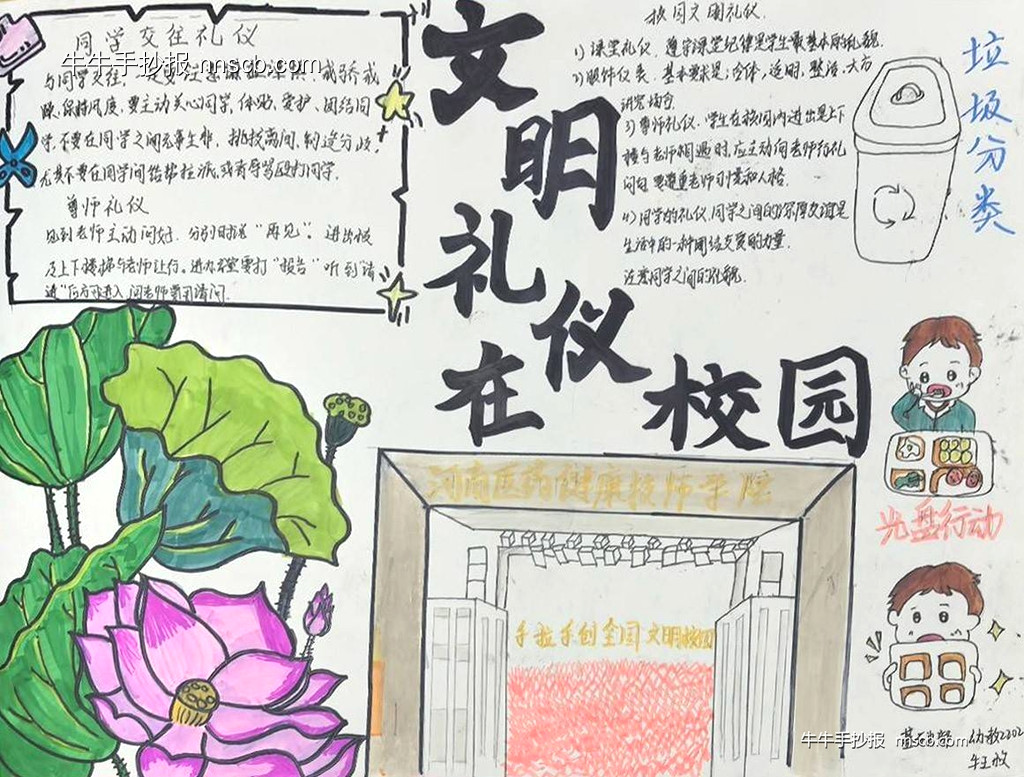 同学交往礼仪
牛牛手抄报 nnscb.com
与同学交往，
保持风度，要主动关心同学，体贴、爱护、团结同
学，不要在同学之间无事生非，挑拨离间，制造分歧，
尤其不要在同学间拉帮结派，或者辱骂殴打同学。
尊师礼仪
见到老师主动问好，分别时说“再见”。进出校
及上下楼梯与老师让行。进办公室要打“报告”听到“请
进”后方可进入，问老师要用请问
文明礼仪在校园
校园文明礼仪.
1）课堂礼仪，遵守课堂纪律是学生最基本的礼貌.
2）服饰仪表，基本要求是；合体，适时，整洁，大方
讲究场合.
3）尊师礼仪，学生在校园内进出或上下
楼与老师相遇时，应主动向老师行礼
问好，要尊重老师习惯和人格.
4）同学的礼仪，同学之间的深厚友谊是
生活中的一种团结友爱的力量.
注意同学之间的礼貌.
垃圾分类
光盘行动
河南医药健康技师学院
手拉手创全国文明校园
牛牛手抄报 nnscb.com
幼教2202